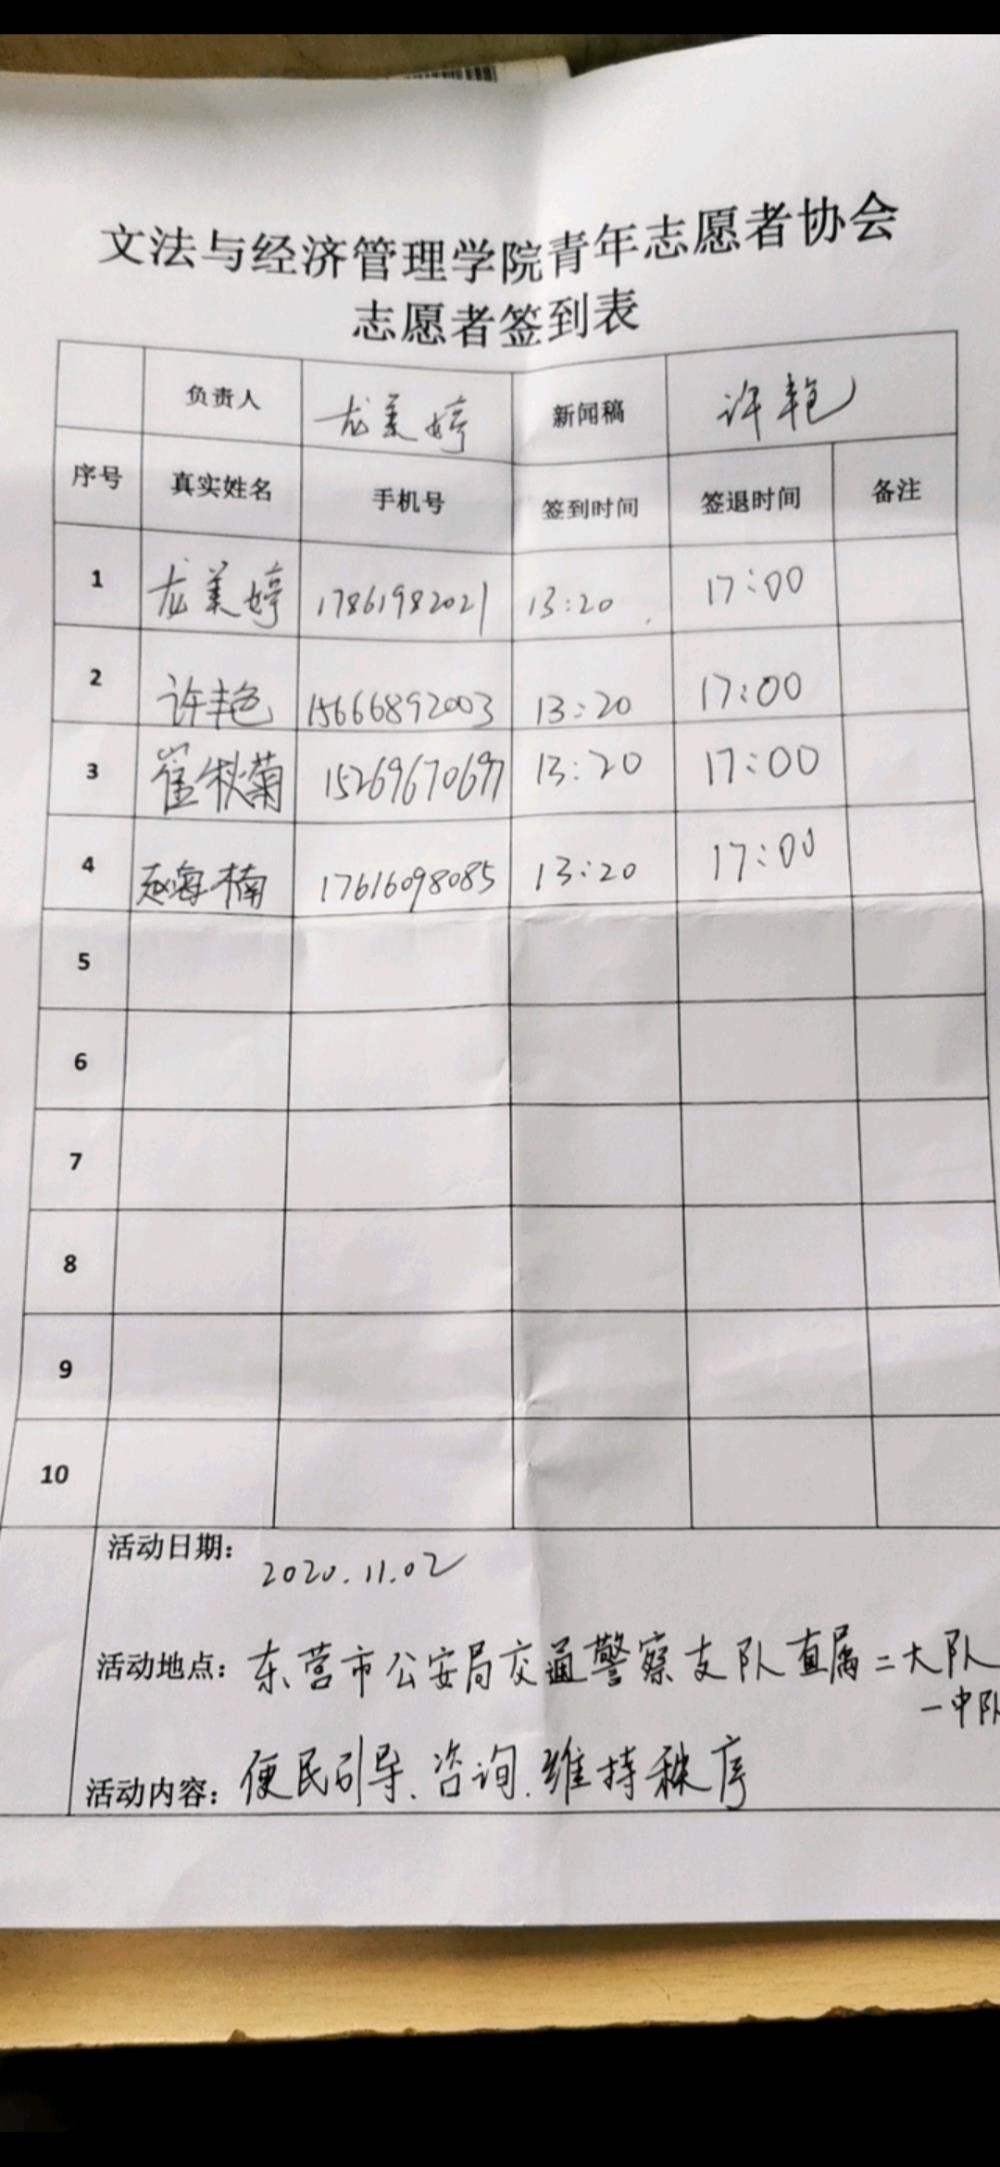 文法与经济管理学院青年志愿者协会
志愿者签到表
负责人 龙美婷 新闻稿 许艳
序号 真实姓名 手机号 签到时间 签退时间 备注
1 龙美婷 17861982021 13:20 17:00
2 许艳 15666892003 13:20 17:00
3 崔秋菊 15269670697 13:20 17:00
4 赵海楠 17616098085 13:20 17:00
5
6
7
8
9
10
活动日期: 2020.11.02
活动地点: 东营市公安局交通警察支队直属二大队
一中队
活动内容: 便民引导、咨询、维持秩序